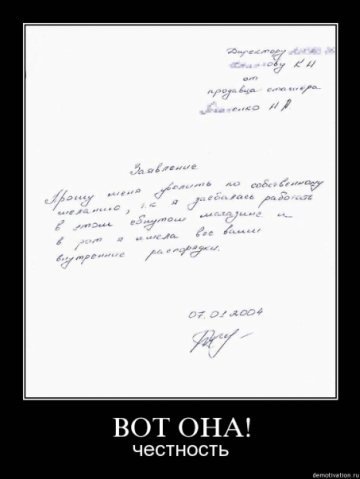 Директору
К Н
от
продавца стажера
Н А
Заявление
Прошу меня уволить по собственному
желанию, т.к я заебалась работать
в этом ебнутом магазине и
в рот я имела все ваши
внутренние распорядки.
07.01.2004
ВОТ ОНА!
честность
demotivation.ru